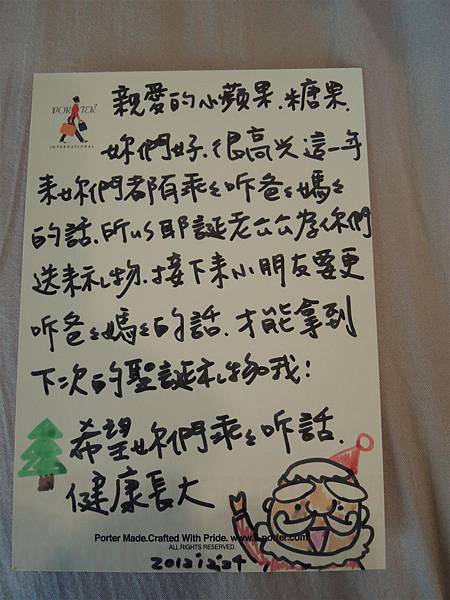 PORTER
INTERNATIONAL
親愛的小蘋果.糖果.
妳們好.很高兴這一年
來妳們都有乖乖听爸爸媽媽
的話.所以耶誕老公公為你們
送來礼物.接下來小朋友要更
听爸爸媽媽的話.才能拿到
下次的聖誕礼物哦!
希望妳們乖乖听話.
健康長大
Porter Made.Crafted With Pride. www.t-porter.com
ALL RIGHTS RESERVED.
2012 12.24